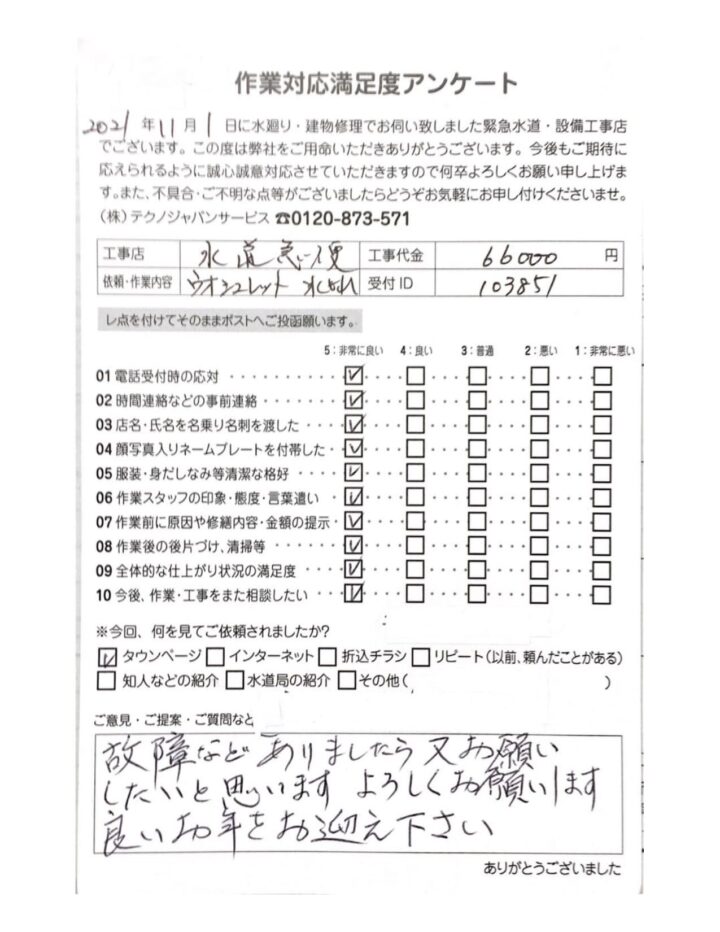 作業対応満足度アンケート
2021年11月1日に水廻り・建物修理でお伺い致しました緊急水道・設備工事店
でございます。この度は弊社をご用命いただきありがとうございます。今後もご期待に
応えられるように誠心誠意対応させていただきますので何卒よろしくお願い申し上げま
す。また、不具合・ご不明な点等がございましたらどうぞお気軽にお申し付けくださいませ。
(株)テクノジャパンサービス ☎0120-873-571
工事店 水道急便 工事代金 66000 円
依頼・作業内容 ウオシュレット 水もれ 受付ID 103851
レ点を付けてそのままポストへご投函願います。
5:非常に良い 4:良い 3:普通 2:悪い 1:非常に悪い
01 電話受付時の応対
02 時間連絡などの事前連絡
03 店名・氏名を名乗り名刺を渡した
04 顔写真入りネームプレートを付帯した
05 服装・身だしなみ等清潔な格好
06 作業スタッフの印象・態度・言葉遣い
07 作業前に原因や修繕内容・金額の提示
08 作業後の後片づけ、清掃等
09 全体的な仕上がり状況の満足度
10 今後、作業・工事をまた相談したい
※今回、何を見てご依頼されましたか?
タウンページ インターネット 折込チラシ リピート(以前、頼んだことがある)
知人などの紹介 水道局の紹介 その他( )
ご意見・ご提案・ご質問など
故障など ありましたら 又お願い
したいと思います よろしくお願いします
良いお年をお迎え下さい
ありがとうございました